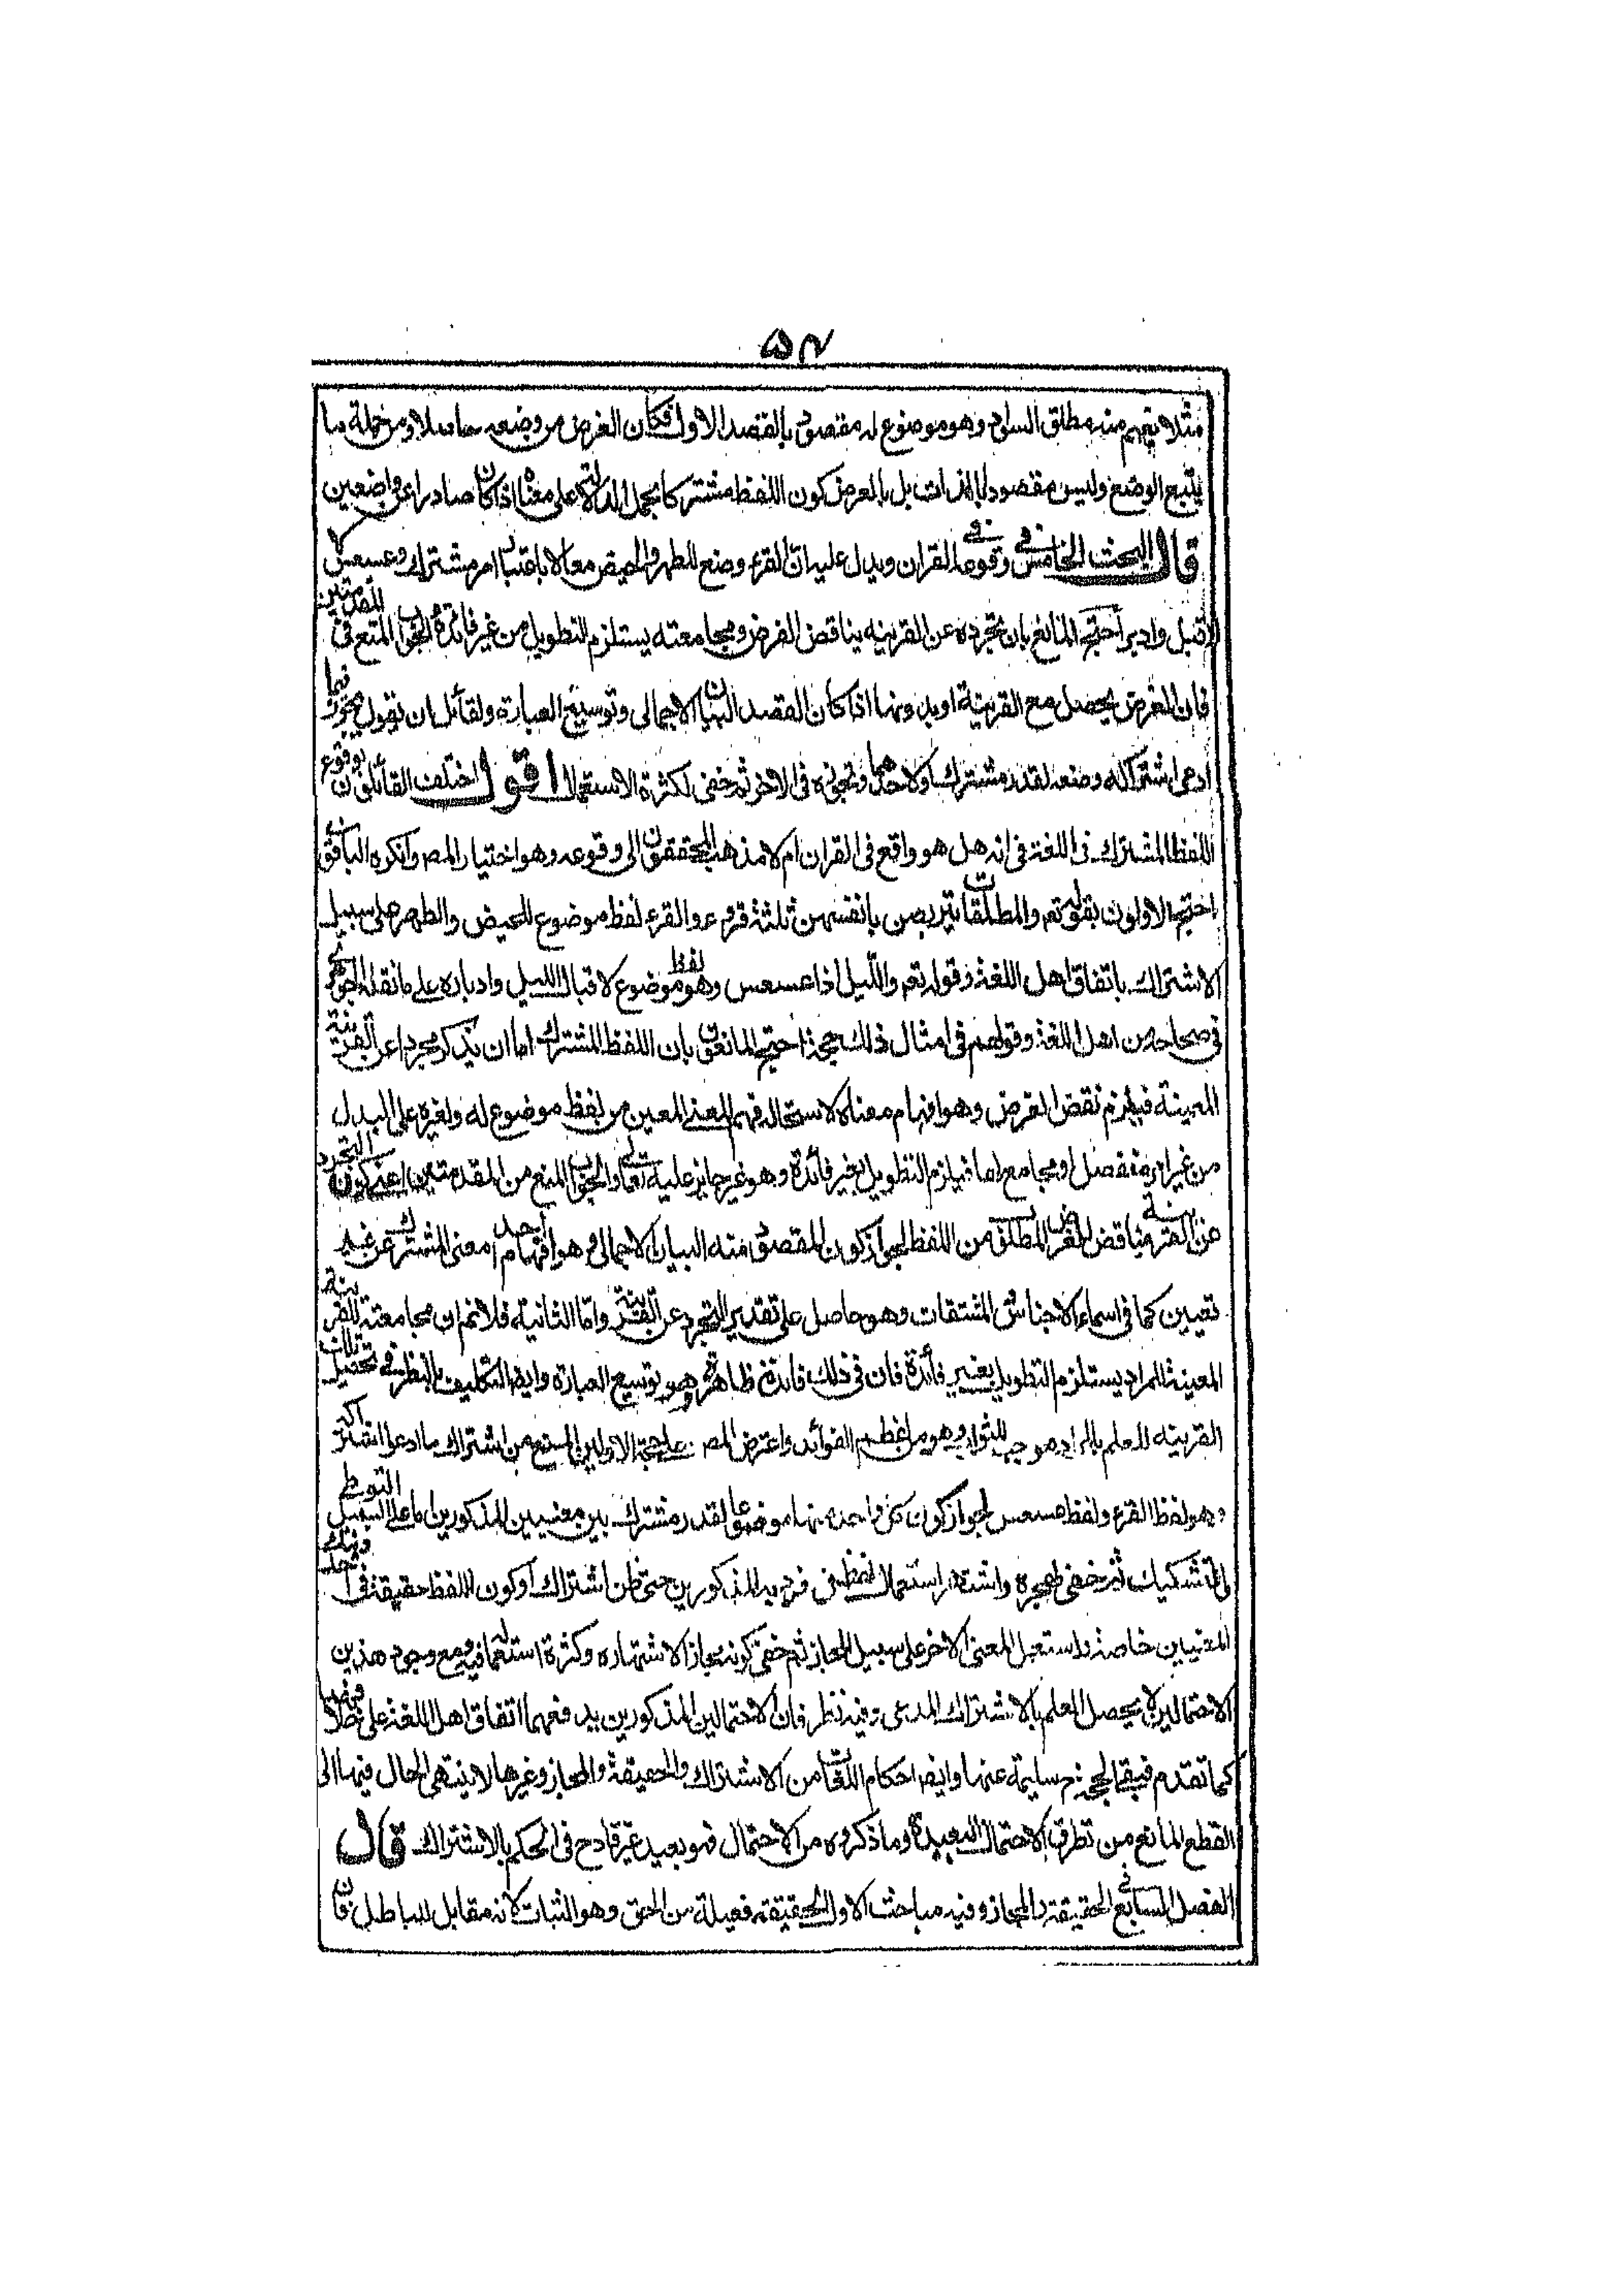 ٥٧
مثلا يفهم منه مطلق السواد وهو موضوع له مقصود بالقصد الاول فكان الغرض من وضعه حاصلا ومن جملة ما
يتبع الوضع وليس مقصودا بالذات بل بالعرض كون اللفظ مشتركا مجمل الدلالة على معناه اذا كان صادرا عن واضعين
قال البحث الخامس في وقوعه في القران ويدل عليه ان القرء وضع للطهر والحيض معا لا باعتبار امر مشترك وعسعس
لاقبل وادبر احتج المانع بان تجرده عن القرينه يناقض الغرض ومجامعته يستلزم التطويل من غير فائدة والجواب المنع في المقدمتين
فان الغرض يحصل مع القرينة او بدونها اذا كان القصد البيان الاجمالى وتوسيع العبارة ولقائل ان يقول يجوز فيما
ادعى اشتراكه وضعه لقدر مشترك او لاحدهما وتجوزه فى الاخر ثم خفى لكثرة الاستعمال اقول اختلف القائلون بوقوع
اللفظ المشترك فى اللغة فى انه هل هو واقع فى القران ام لا مذهب المحققون الى وقوعه وهو اختيار المص وانكره الباقون
احتج الاولون بقوله تعم والمطلقات يتربصن بانفسهن ثلثة قروء والقرء لفظ موضوع للحيض والطهر على سبيل
الاشتراك باتفاق اهل اللغة وقوله تعم والليل اذا عسعس وهو لفظ موضوع لاقبال الليل وادباره على ما نقله الجوهرى
فى صحاحه من اهل اللغة وقولهم فى امثال ذلك حجة احتج المانعون بان اللفظ المشترك اما ان يذكر مجردا عن القرينة
المعينة فيلزم نقض الغرض وهو افهام معناه لاستحالة فهم المعنى المعين من لفظ موضوع له ولغيره على البدل
من غير امر منفصل او مجامع لها فيلزم التطويل بغير فائدة وهو غير جايز عليه تعالى والجواب المنع من المقدمتين اعنى كون التجرد
عن القرينة مناقض الغرض المطلوب من اللفظ لجواز كون المقصود منه البيان الاجمالى وهو افهام احد معنى المشترك من غير
تعيين كما فى اسماء الاجناس المشتقات وهو حاصل على تقدير التجرد عن القرينة واما الثانية فلا نم ان مجامعته للقرينة
المعينة للمراد يستلزم التطويل بغير فائدة فان فى ذلك فائدة ظاهرة وهو توسيع العبارة وايضا التكليف بالنظر فى تحصيل تلك
القرينه للعلم بالمراد موجب للثواب وهو من اعظم الفوائد واعترض المص على حجة الاولين بالمنع من اشتراك ما ادعوا اشتراكه
وهو لفظ القرء ولفظ عسعس لجواز كون كل واحد منهما موضوعا لقدر مشترك بين معنيين المذكورين اما على سبيل التواطى
او التشكيك ثم خفى وهجره واشتهر استعمال لفظ فى فرديه المذكورين حتى ظن اشتراك او كون اللفظ حقيقة فى احد ذينك
المعنيين خاصة واستعمل المعنى الاخر على سبيل المجاز ثم خفى كونه مجازا لاشتهاره وكثرة استعماله فيه ومع وجود هذين
الاحتمالين لا يحصل العلم بالاشتراك المدعى وفيه نظر فان الاحتمالين المذكورين يدفعهما اتفاق اهل اللغة على خلافهما
كما تقدم فيبقى الحجة سليمة عنها وايضا احكام اللغات من الاشتراك والحقيقة والمجاز وغيرها لا ينتهى الحال فيها الى
القطع المانع من تطرق الاحتمال البعيدة وما ذكروه من الاحتمال فهو بعيد غير قادح فى الحكم بالاشتراك قال
الفصل السابع فى الحقيقة والمجاز وفيه مباحث الاول الحقيقة فعيلة من الحق وهو الثبات لانه مقابل للباطل فان